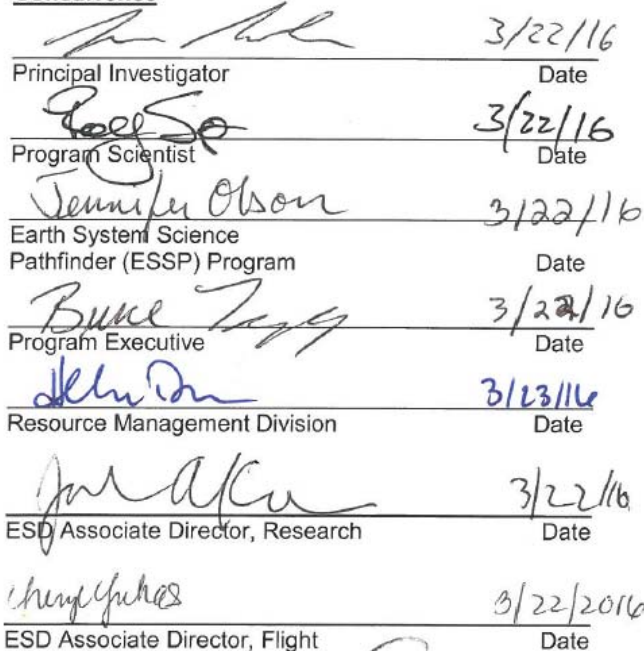 3/22/16
Principal Investigator Date
3/22/16
Program Scientist Date
Jennifer Olson 3/22/16
Earth System Science
Pathfinder (ESSP) Program Date
Bruce 3/22/16
Program Executive Date
3/23/16
Resource Management Division Date
3/22/16
ESD Associate Director, Research Date
Cheryl Yuhas 3/22/2016
ESD Associate Director, Flight Date